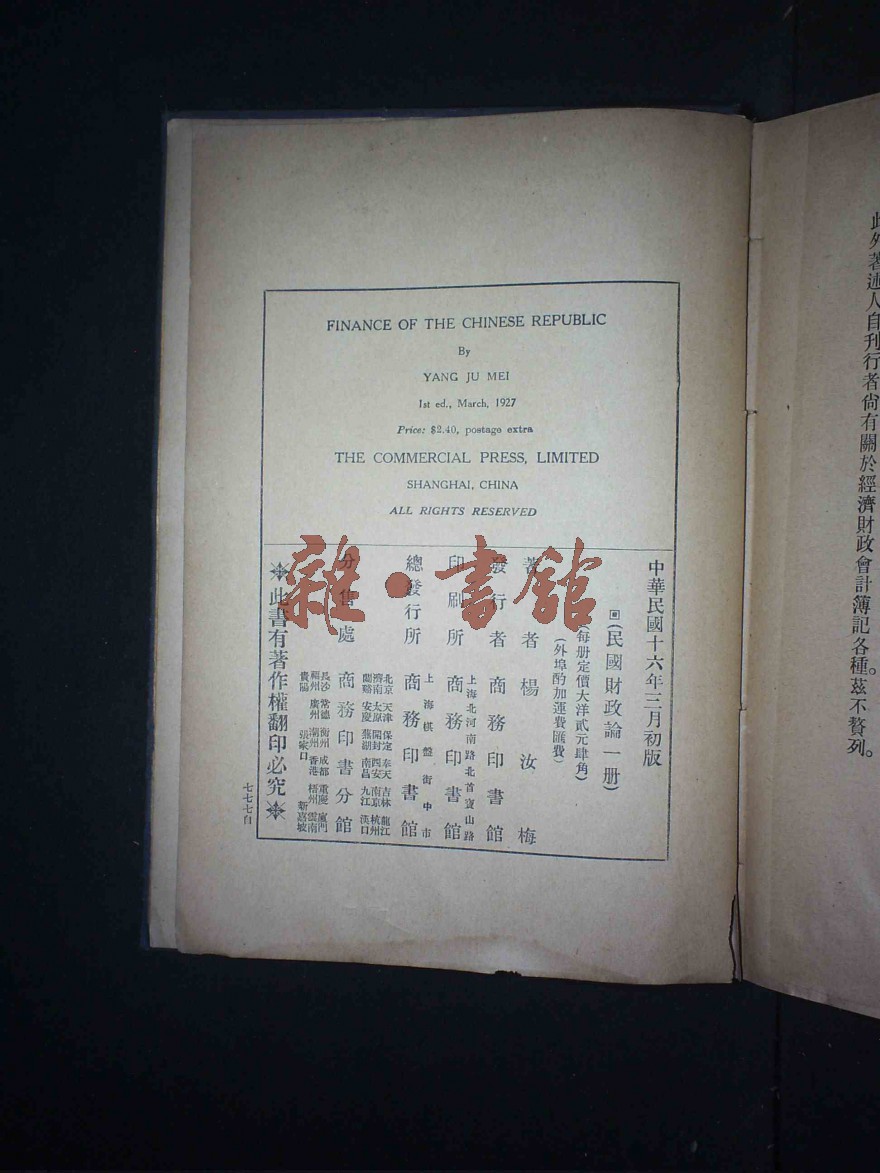 FINANCE OF THE CHINESE REPUBLIC
By
YANG JU MEI
1st ed., March, 1927
Price: $2.40, postage extra
THE COMMERCIAL PRESS, LIMITED
SHANGHAI, CHINA
ALL RIGHTS RESERVED
中華民國十六年三月初版
(民國財政論一册)
(每册定價大洋貳元肆角)
(外埠酌加運費匯費)
著者 楊汝梅
發行者 商務印書館
上海北河南路北首寶山路
印刷所 商務印書館
上海棋盤街中市
總發行所 商務印書館
北京 天津 保定 奉天 吉林 龍江
濟南 太原 開封 西安 南京 杭州
蘭谿 安慶 蕪湖 南昌 九江 漢口
分售處 商務印書分館
長沙 常德 衡州 成都 重慶 廈門
福州 廣州 潮州 香港 梧州 雲南
貴陽 張家口 新嘉坡
此書有著作權翻印必究
七七七自
此外著述人自刊行者尙有關於經濟財政會計簿記各種茲不贅列。
雜·書館